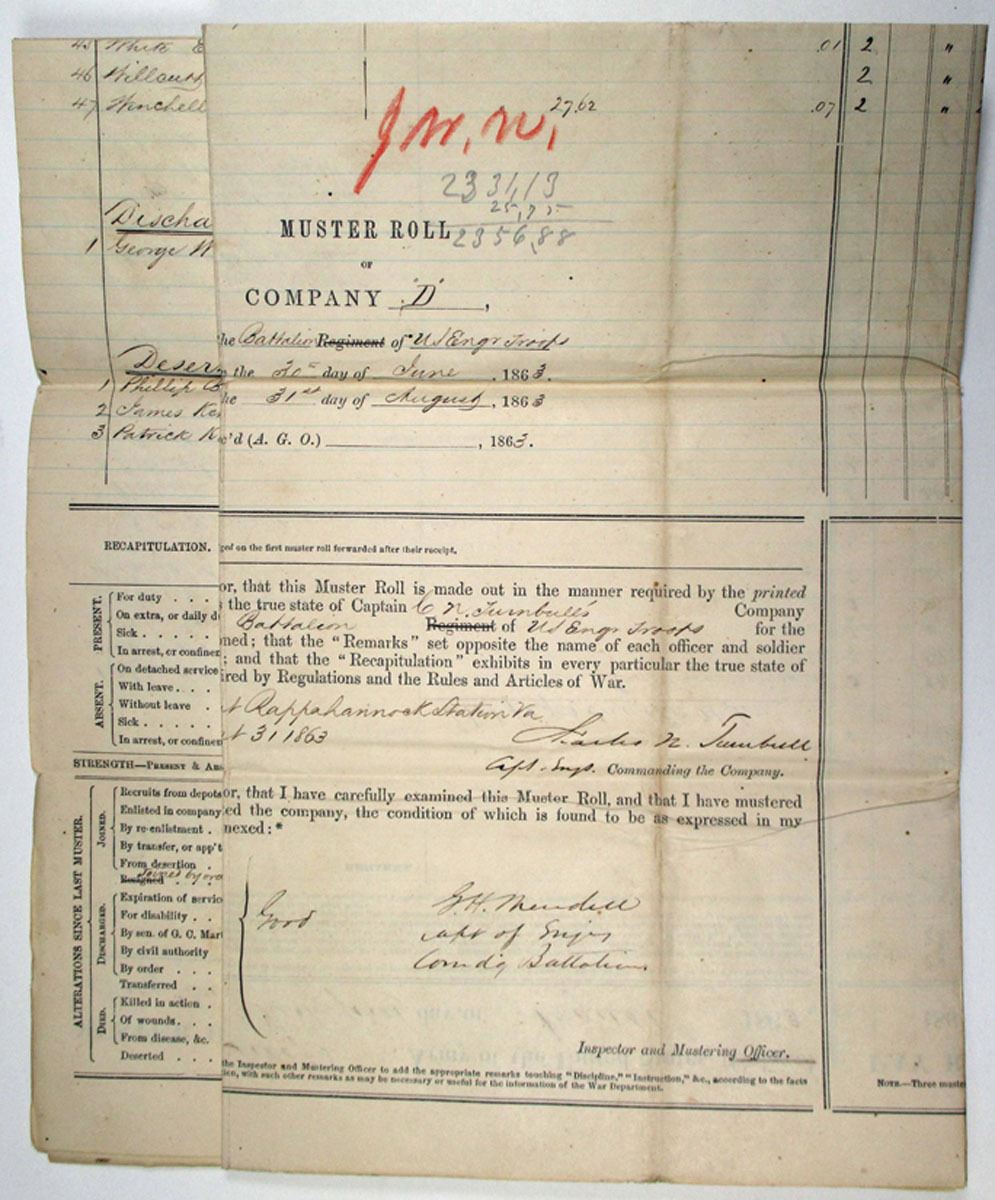 45 White E .01 2 "
46 Willcutts 2 "
47 Winchell 27.62 .07 2 "
J W. W.
2331,13
25,75
2356,88
Discha
1 George W
MUSTER ROLL
OF
COMPANY "D",
the Battalion Regiment of US Engr Troops
Deser
the 30th day of June, 1863.
1 Phillip
he 31st day of August, 1863
2 James Ke
3 Patrick K
c'd (A. G. O.) , 1863.
RECAPITULATION. ged on the first muster roll forwarded after their receipt.
PRESENT.
For duty . . .
On extra, or daily d
Sick . . . . .
In arrest, or confine
ABSENT.
On detached service
With leave . . .
Without leave .
Sick . . . . .
In arrest, or confine
STRENGTH—PRESENT & ABS
or, that this Muster Roll is made out in the manner required by the printed
the true state of Captain C. N. Turnbull's Company
Battalion Regiment of US Engr Troops for the
ned; that the "Remarks" set opposite the name of each officer and soldier
; and that the "Recapitulation" exhibits in every particular the true state of
ired by Regulations and the Rules and Articles of War.
t Rappahannock Station Va
st 31 1863
Charles N. Turnbull
Capt. Engs. Commanding the Company.
or, that I have carefully examined this Muster Roll, and that I have mustered
ed the company, the condition of which is found to be as expressed in my
nexed:*
ALTERATIONS SINCE LAST MUSTER.
JOINED.
Recruits from depots
Enlisted in company
By re-enlistment .
By transfer, or app't
From desertion .
Resigned . . Joined by
DISCHARGED.
Expiration of service
For disability . .
By sen. of G. C. Mar
By civil authority
By order . . .
Transferred . .
DIED.
Killed in action .
Of wounds . . .
From disease, &c.
Deserted . . .
Good
G. H. Mendell
Capt of Engrs
Comdg Battalion
Inspector and Mustering Officer.
the Inspector and Mustering Officer to add the appropriate remarks touching "Discipline," "Instruction," &c., according to the facts
tion, with such other remarks as may be necessary or useful for the information of the War Department.
NOTE.—Three muste